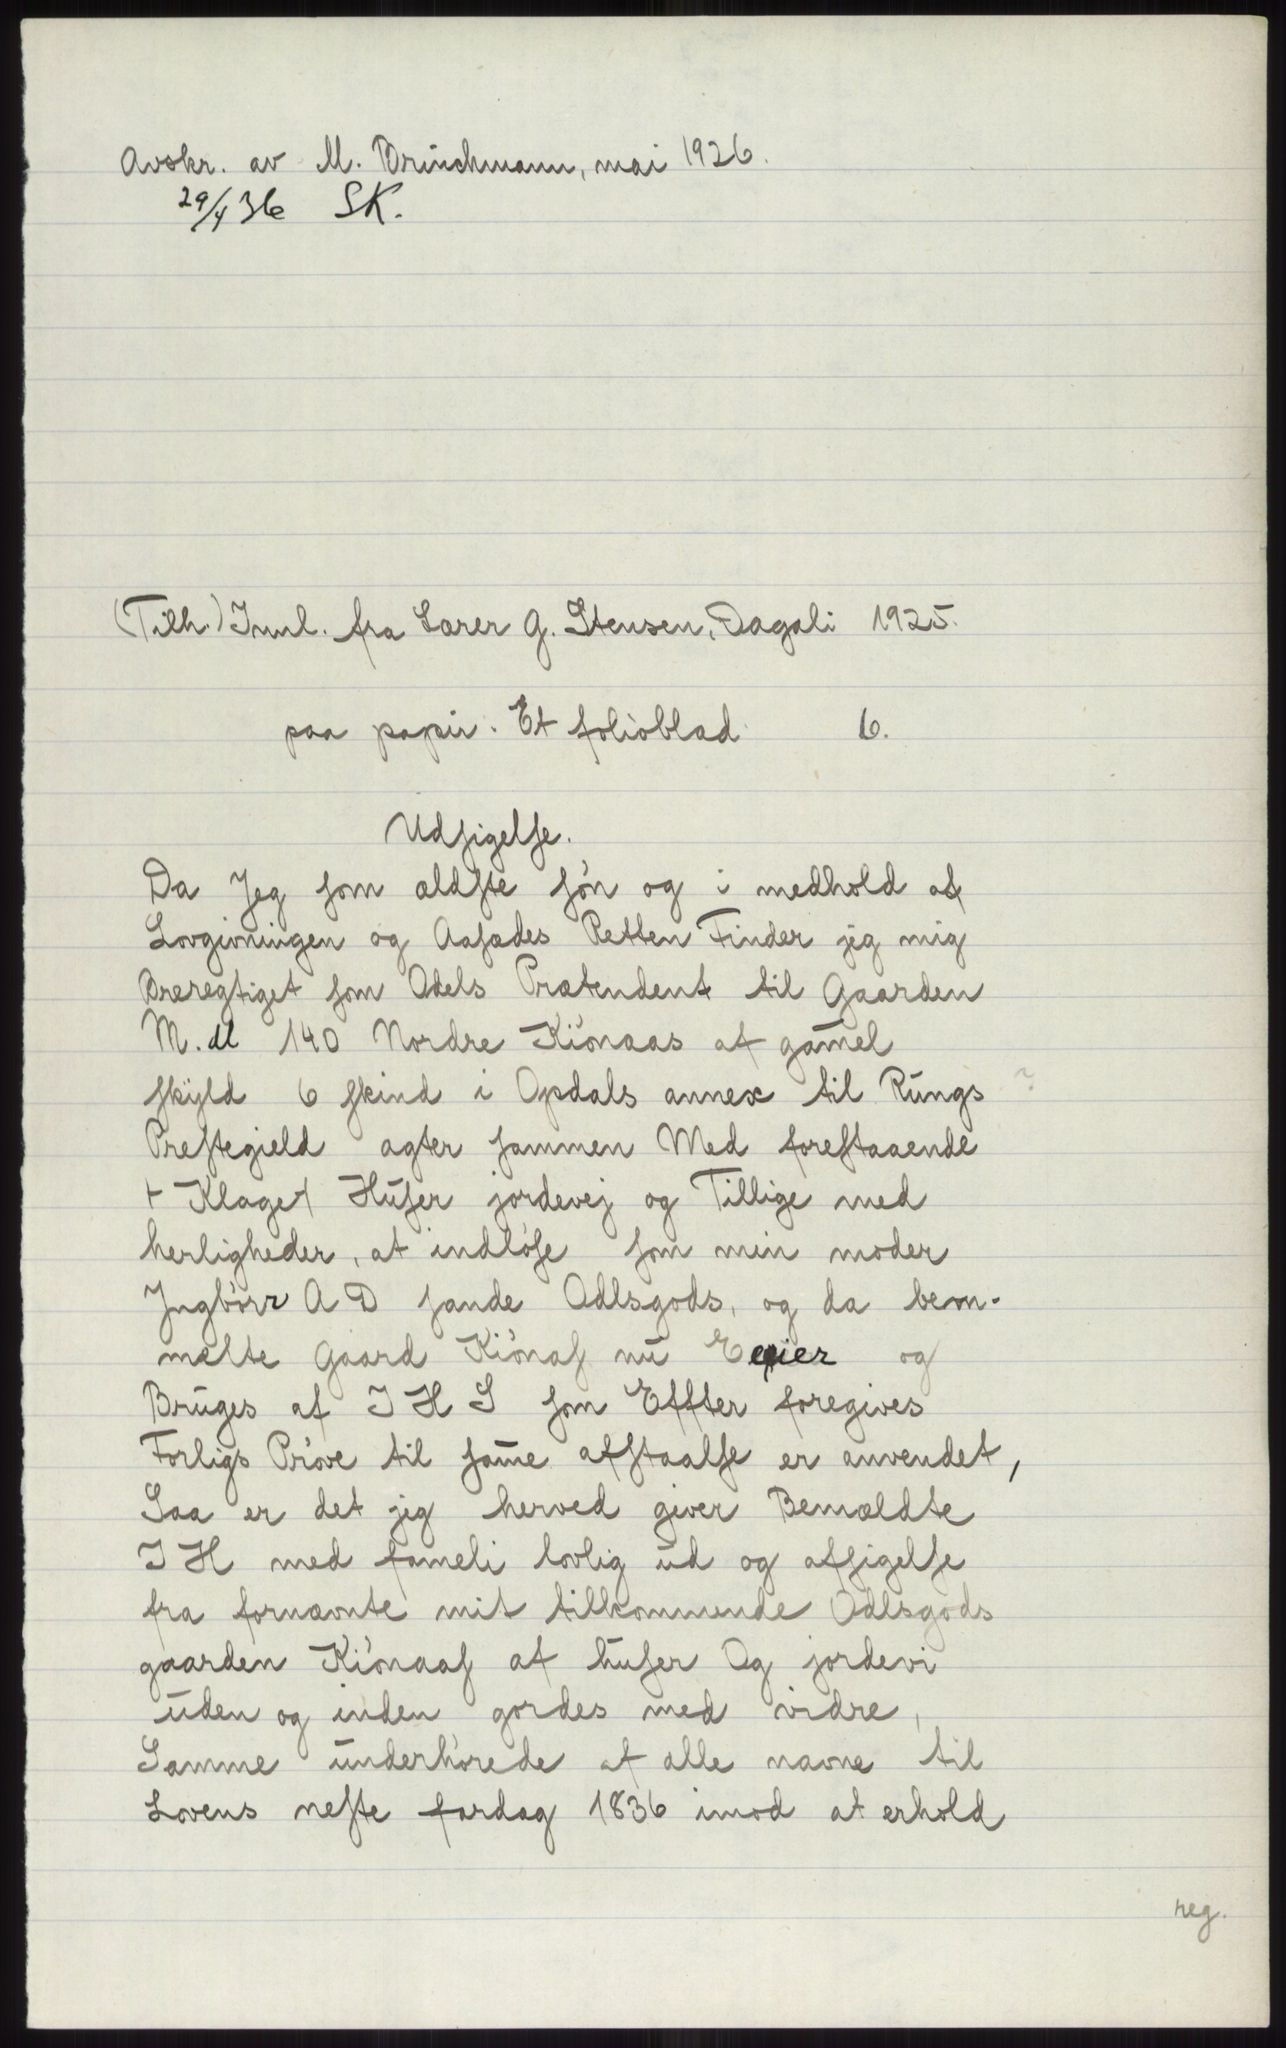 Avskr. av M. Brinchmann, mai 1926.
29/4 36 SK.
(Tilh.) Innl. fra Lærer G. Stensen, Dagali 1925.
paa papir. Et folioblad 6.
Udsigelse.
Da Jeg som ældste søn og i medhold af
Lovgivningen og Aasædes Retten Finder jeg mig
Breregtiget som Odels Prætendent til Gaarden
M. 140 Nordre Kiönaas af gam̄el
skyld 6 skind i Opdals annex til Rungs ?
Prestegield agter sammen Med forestaaende
+ Klaget Huser jordevej og Tillige med
herligheder, at indløse som min moder
Ingbörr A D sande Odlsgods, og da bem-
mælte Gaard Kiönas nu Eeier og
Bruges af I H S som Effter foregives
Forligs Pröve til sam̄e afstaalse er anvendet,
Saa er det jeg herved giver Bemældte
I H med fameli lovlig ud og afsigelse
fra fornævnte mit tilkommende Odlsgods
gaarden Kiönaas af huser Og jordevi
uden og inden gordes med vidre,
Samme underhörede af alle navne til
Lovens neste fardag 1836 imod at erhold
reg.